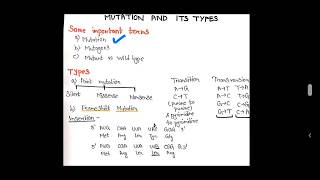 MUTATION AND ITS TYPES
Some important terms
a) Mutation
b) Mutagens
c) Mutant vs Wild type
Types
a) Point mutation
Silent Missense Nonsense
b) Frameshift Mutation
Insertion -
Transition
A→G
C→T
(purine to purine)
& pyrimidine to pyrimidine
Transversion
A→T T→A
A→C T→G
G→C C→G
G→T C→A
5' AUG
Met Arg Leu Tyr Gly
3' AUG
Met Arg Leu